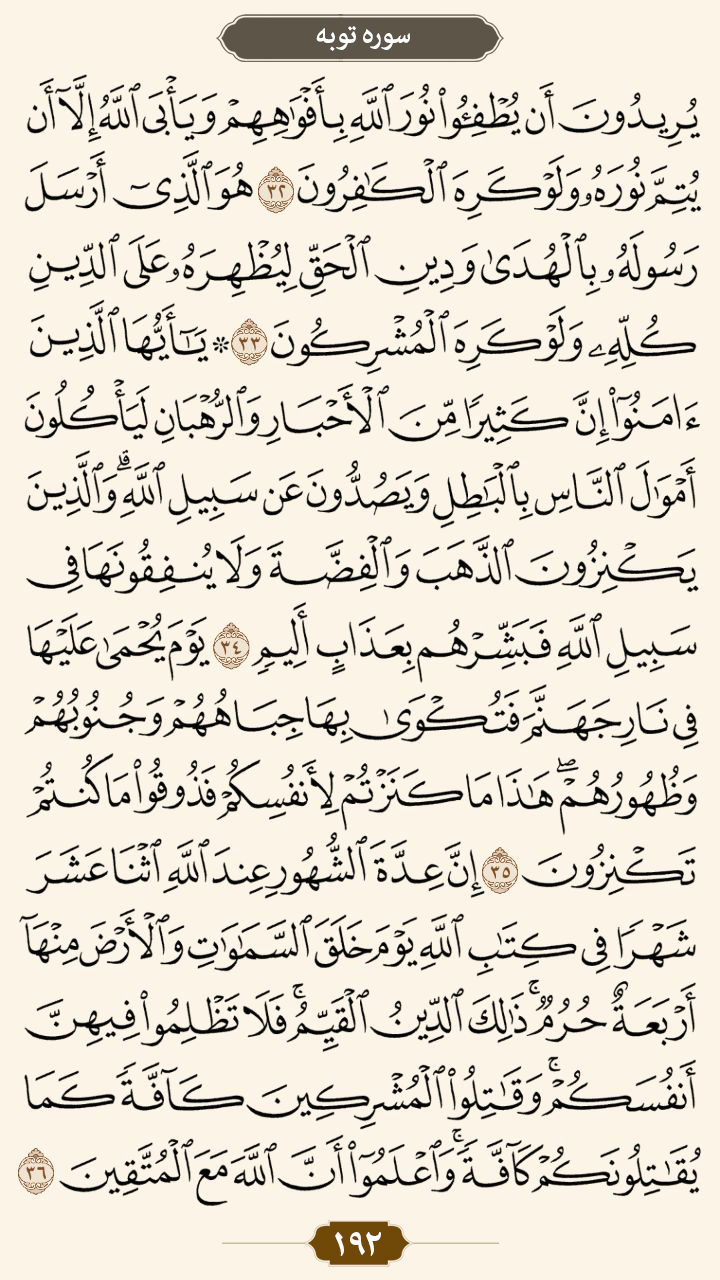 سوره توبه
يُرِيدُونَ أَن يُطْفِـُٔوا۟ نُورَ ٱللَّهِ بِأَفْوَٰهِهِمْ وَيَأْبَى ٱللَّهُ إِلَّآ أَن
يُتِمَّ نُورَهُۥ وَلَوْ كَرِهَ ٱلْكَٰفِرُونَ ٣٢ هُوَ ٱلَّذِىٓ أَرْسَلَ
رَسُولَهُۥ بِٱلْهُدَىٰ وَدِينِ ٱلْحَقِّ لِيُظْهِرَهُۥ عَلَى ٱلدِّينِ
كُلِّهِۦ وَلَوْ كَرِهَ ٱلْمُشْرِكُونَ ٣٣ * يَٰٓأَيُّهَا ٱلَّذِينَ
ءَامَنُوٓا۟ إِنَّ كَثِيرًا مِّنَ ٱلْأَحْبَارِ وَٱلرُّهْبَانِ لَيَأْكُلُونَ
أَمْوَٰلَ ٱلنَّاسِ بِٱلْبَٰطِلِ وَيَصُدُّونَ عَن سَبِيلِ ٱللَّهِ ۗ وَٱلَّذِينَ
يَكْنِزُونَ ٱلذَّهَبَ وَٱلْفِضَّةَ وَلَا يُنفِقُونَهَا فِى
سَبِيلِ ٱللَّهِ فَبَشِّرْهُم بِعَذَابٍ أَلِيمٍ ٣٤ يَوْمَ يُحْمَىٰ عَلَيْهَا
فِى نَارِ جَهَنَّمَ فَتُكْوَىٰ بِهَا جِبَاهُهُمْ وَجُنُوبُهُمْ
وَظُهُورُهُمْ ۖ هَٰذَا مَا كَنَزْتُمْ لِأَنفُسِكُمْ فَذُوقُوا۟ مَا كُنتُمْ
تَكْنِزُونَ ٣٥ إِنَّ عِدَّةَ ٱلشُّهُورِ عِندَ ٱللَّهِ ٱثْنَا عَشَرَ
شَهْرًا فِى كِتَٰبِ ٱللَّهِ يَوْمَ خَلَقَ ٱلسَّمَٰوَٰتِ وَٱلْأَرْضَ مِنْهَآ
أَرْبَعَةٌ حُرُمٌ ۚ ذَٰلِكَ ٱلدِّينُ ٱلْقَيِّمُ ۚ فَلَا تَظْلِمُوا۟ فِيهِنَّ
أَنفُسَكُمْ ۚ وَقَٰتِلُوا۟ ٱلْمُشْرِكِينَ كَآفَّةً كَمَا
يُقَٰتِلُونَكُمْ كَآفَّةً ۚ وَٱعْلَمُوٓا۟ أَنَّ ٱللَّهَ مَعَ ٱلْمُتَّقِينَ ٣٦
١٩٢